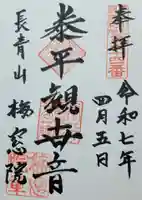 奉拝
令和七年
四月五日
泰平観世音
長青山
梅窓院